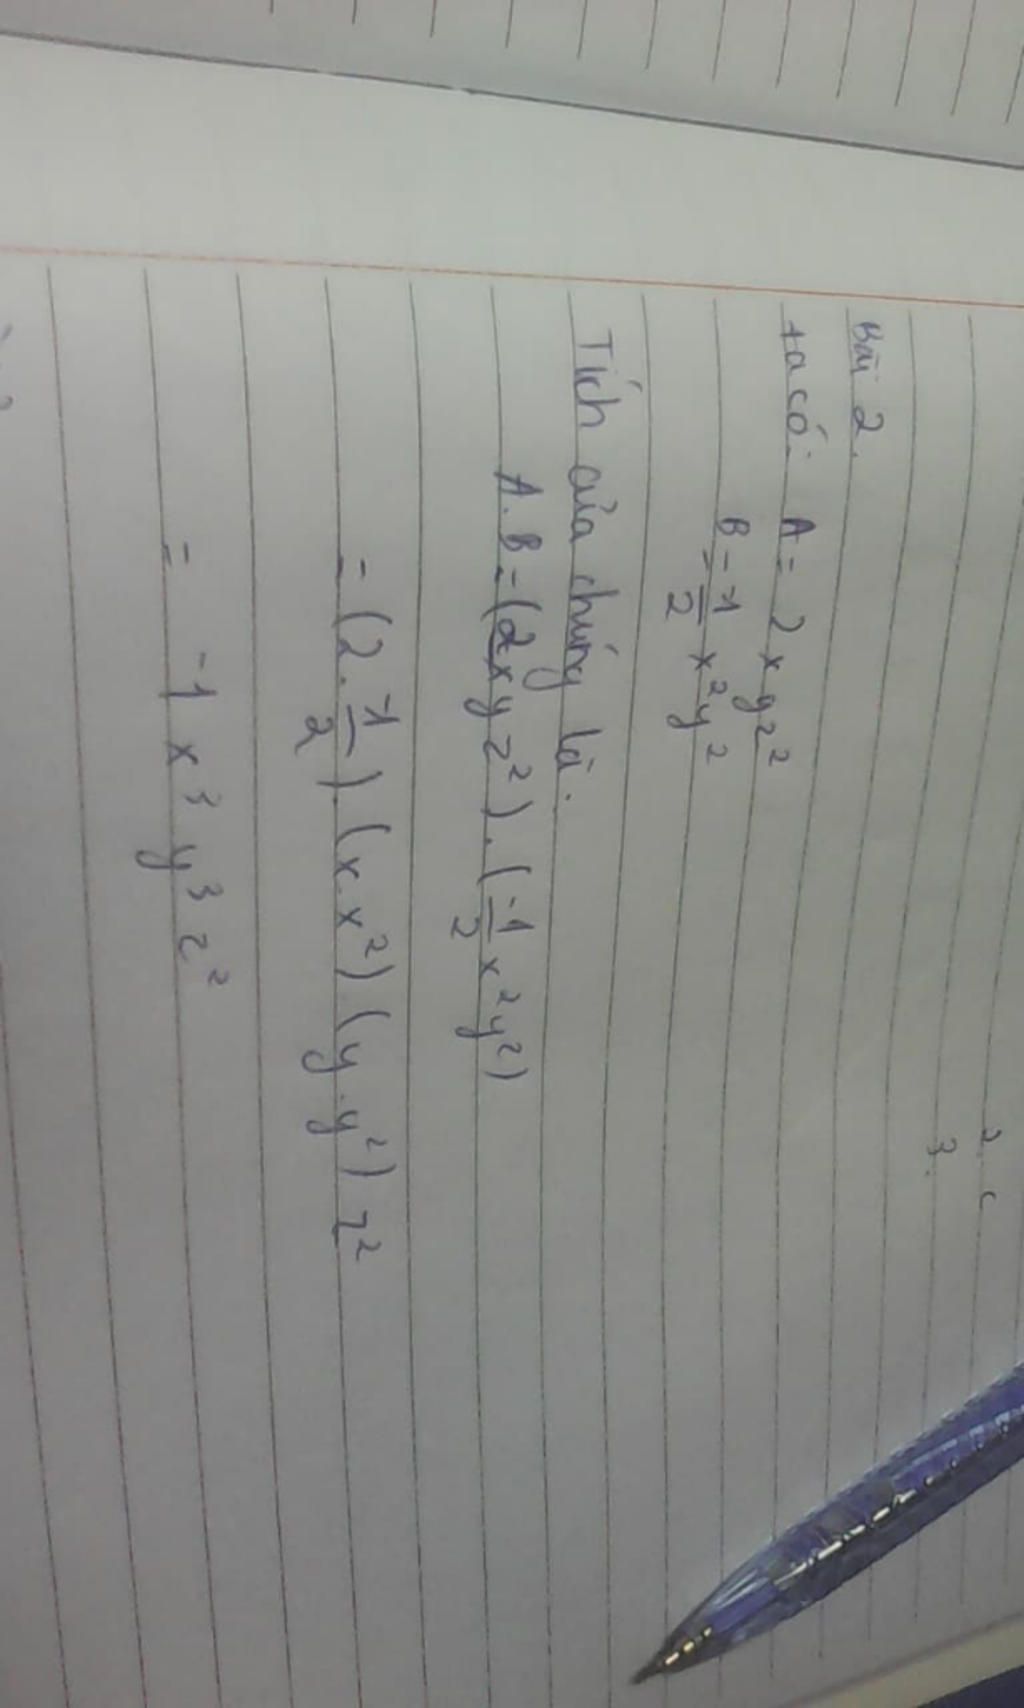 2. c
3.
Bài 2.
ta có: A = 2xyz²
B = -1/2 x²y²
Tích của chúng là.
A.B = (2xyz²).(-1/2 x²y²)
= (2.-1/2)(x.x²)(y.y²)z²
= -1x³y³z²